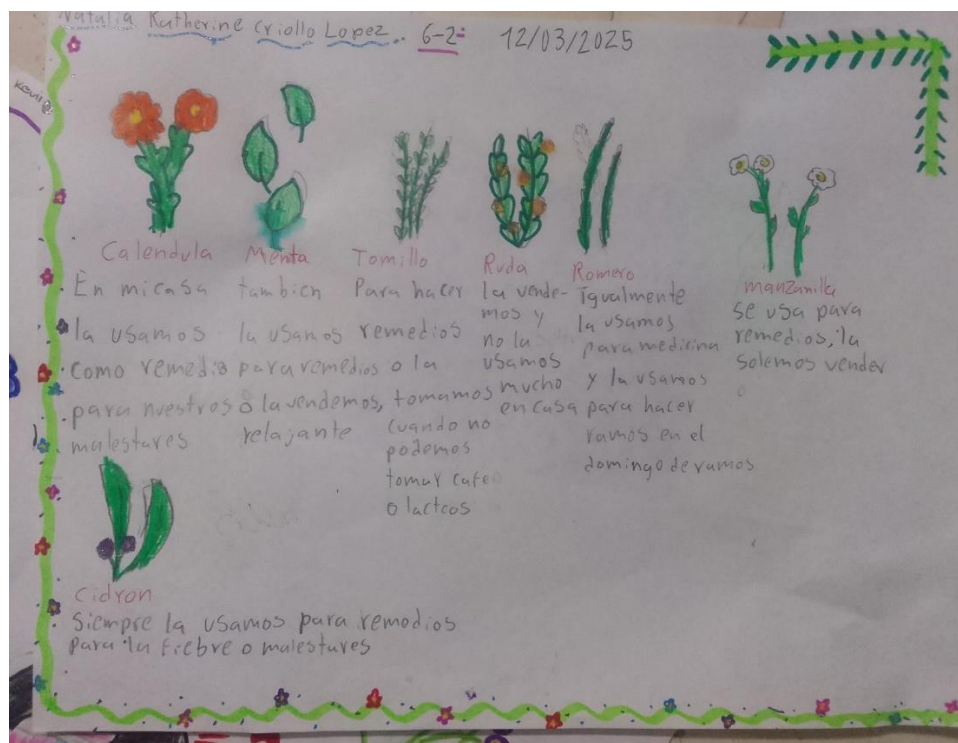 Natalia Katherine Criollo Lopez.. 6-2: 12/03/2025
Calendula
En mi casa
la usamos
como remedio
para nuestros
malestares
Menta
tambien
la usamos
para remedios
o la vendemos,
relajante
Tomillo
Para hacer
remedios
o la
tomamos
cuando no
podemos
tomar cafe
o lacteos
Ruda
la vende-
mos y
no la
usamos
mucho
en casa
Romero
Igualmente
la usamos
para medicina
y la usamos
para hacer
ramos en el
domingo de ramos
manzanilla
se usa para
remedios, la
solemos vender
Cidron
Siempre la usamos para remedios
para la fiebre o malestares